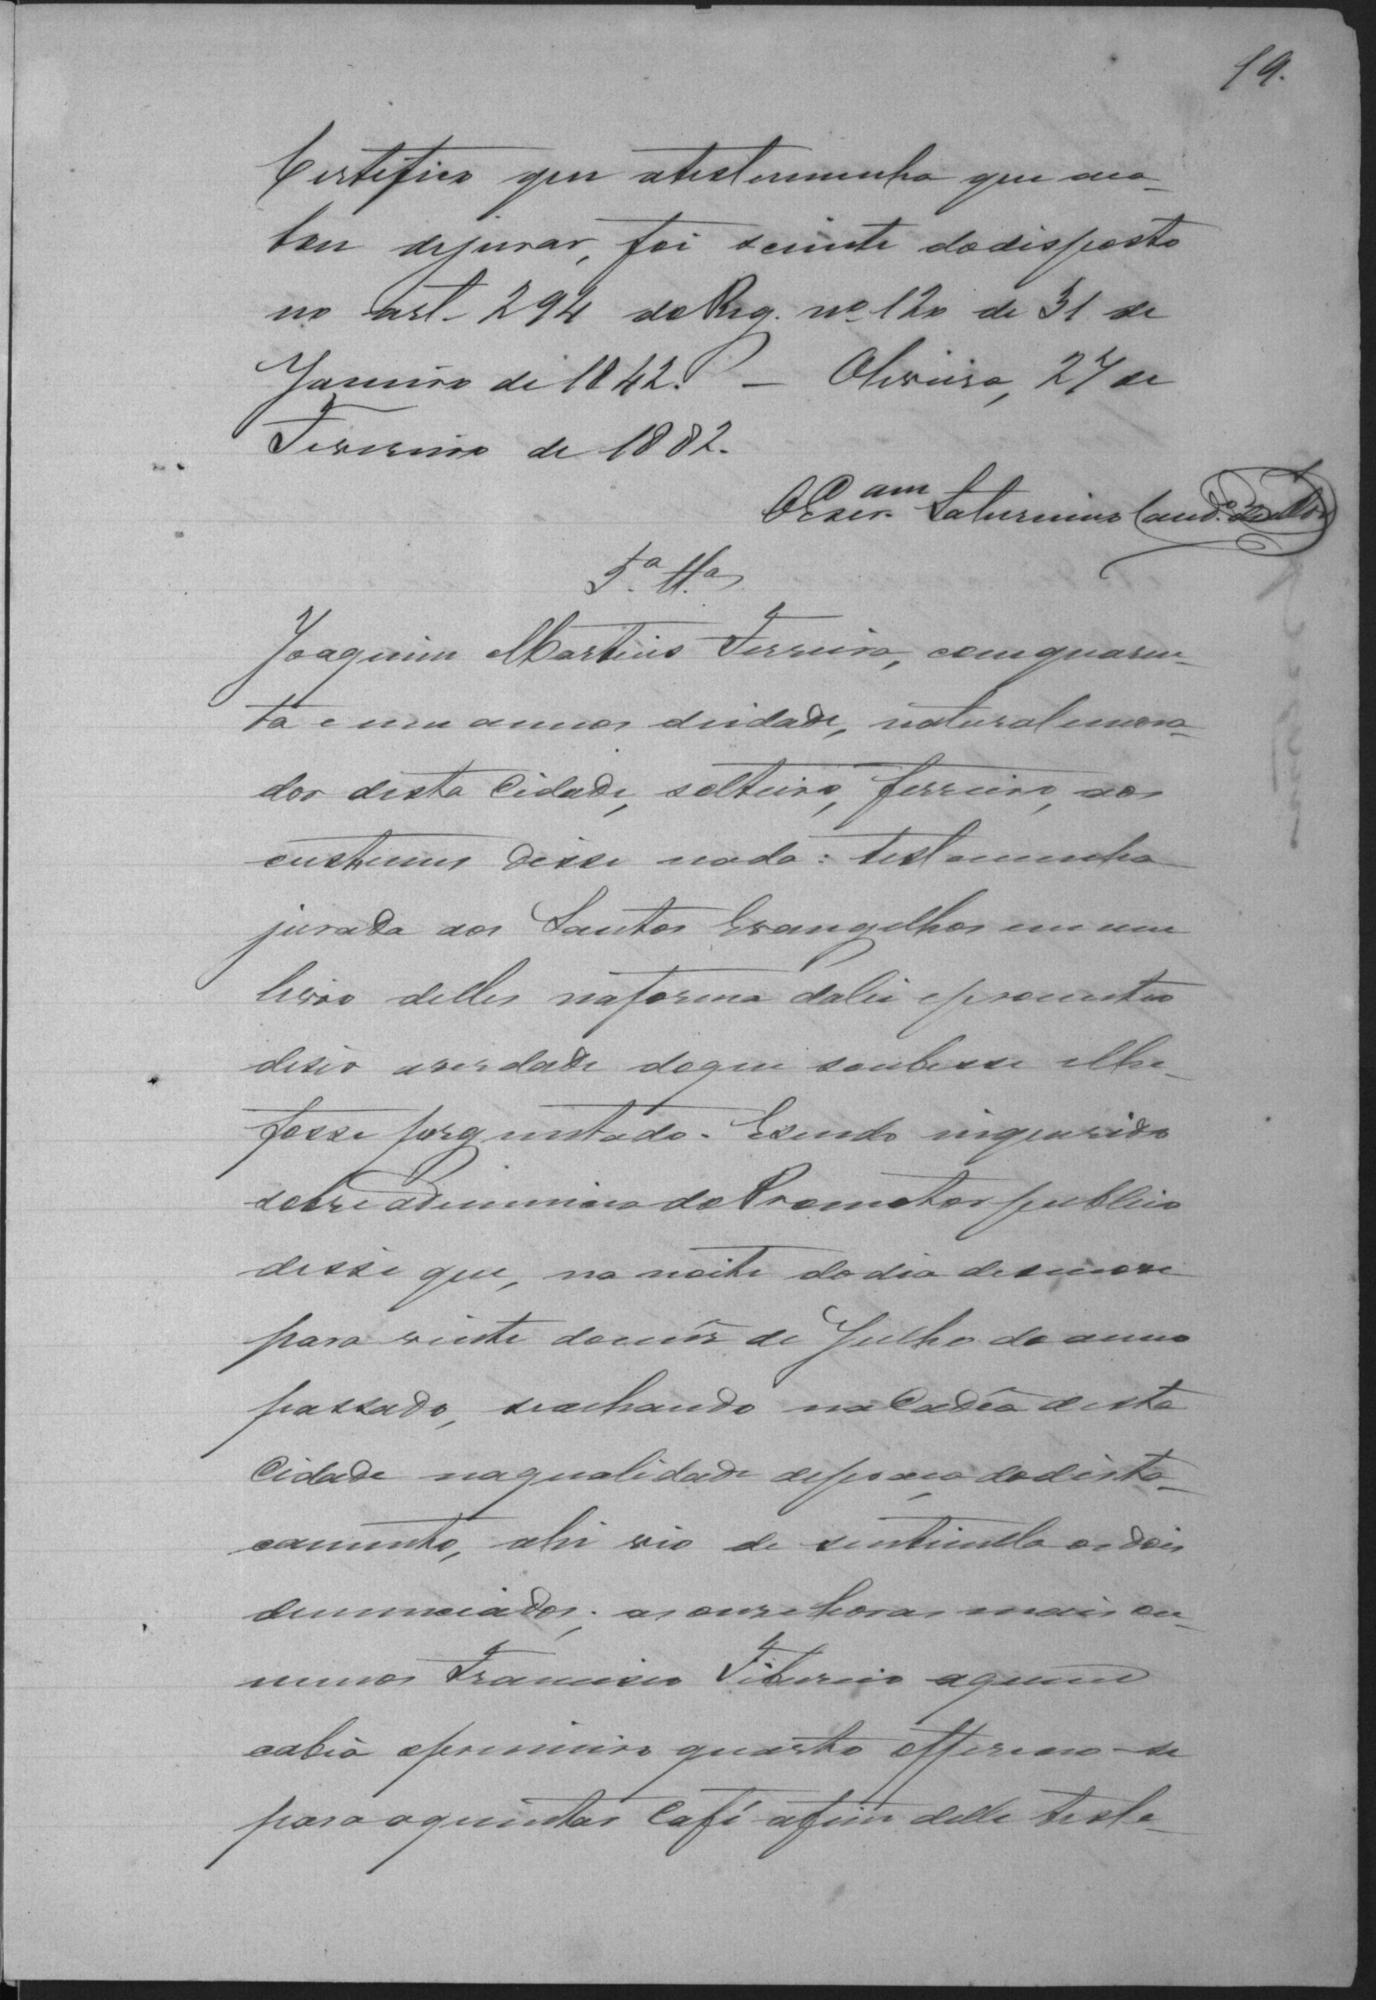 19.
Certifico que atestemunha que aca-
bou dejurar, foi sciente dodisposto
no art. 294 do Reg. nº 120 de 31 de
Janeiro de 1842. — Oliveira, 27 de
Fevereiro de 1882.
O Escr.am Saturnino Cand.º
5.ª tt.ª
Joaquim Martins Ferreira, comquaren-
ta e um annos deidade, natural emora-
dor desta Cidade, solteiro, ferreiro, aos
custumes disse nada: testemunha
jurada aos Santos Evangelhos em um
livro delles naforma dalei eprometteo
deser averdade doque soubesse elhe-
fosse perguntado. Esendo inquerido
sobre adenuncia do Promotor publico
disse que, na noite dodia desenove
para vinte domês de Julho do anno
passado, seachando na Cadêa desta
Cidade naqualidade depraça dodesta-
camento, ahi vio de sentinella os dois
denunciados; as onze horas mais ou-
menos Francisco Tiburcio aquem
cabia oprimeiro quarto offereceo-se
para aquentar Café afim delle teste-